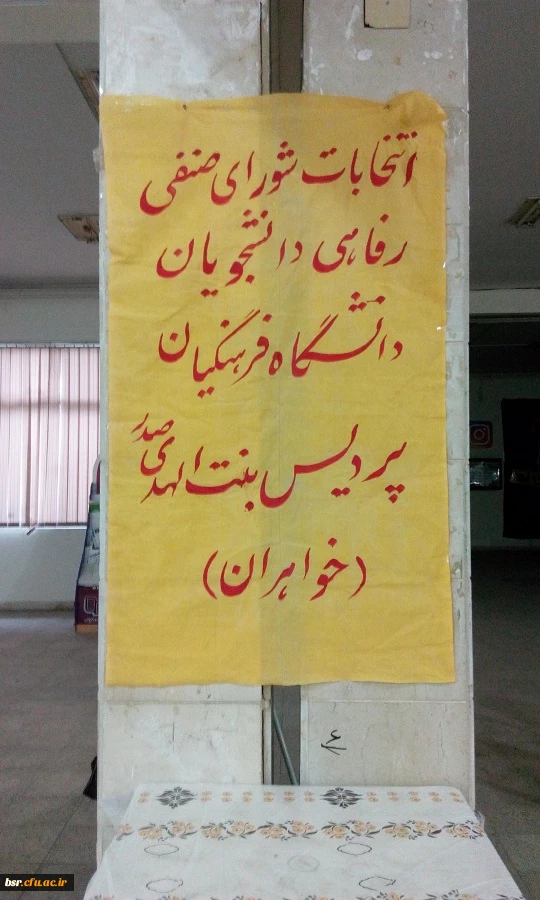 انتخابات شورای صنفی
رفاهی دانشجویان
دانشگاه فرهنگیان
پردیس بنت الهدی صدر
(خواهران)
۶
bsr.cfu.ac.ir